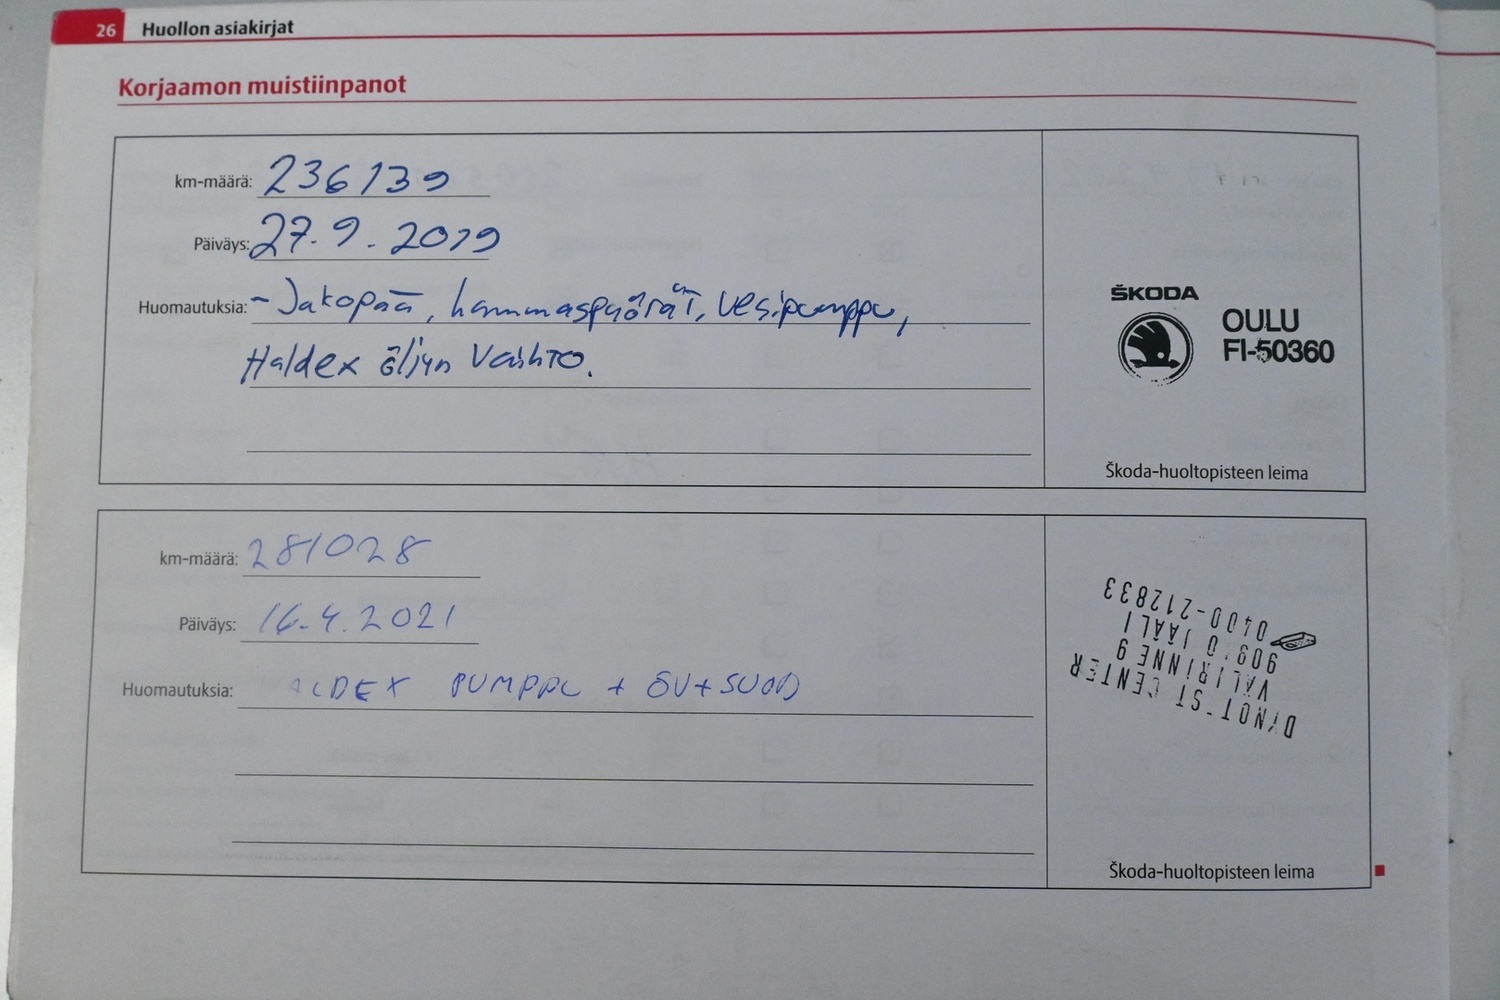 26 Huollon asiakirjat
Korjaamon muistiinpanot
km-määrä: 236139
Päiväys: 27.9.2019
Huomautuksia: - Jakopää, hammaspyörät, vesipumppu,
Haldex öljyn vaihto.
ŠKODA
OULU
FI-50360
Škoda-huoltopisteen leima
km-määrä: 281028
Päiväys: 16.4.2021
Huomautuksia: LDEX PUMPPU + ÖV+SUOD
CENTER
VÄLIRINNE 9
JÄÄLI
0400-212833
Škoda-huoltopisteen leima